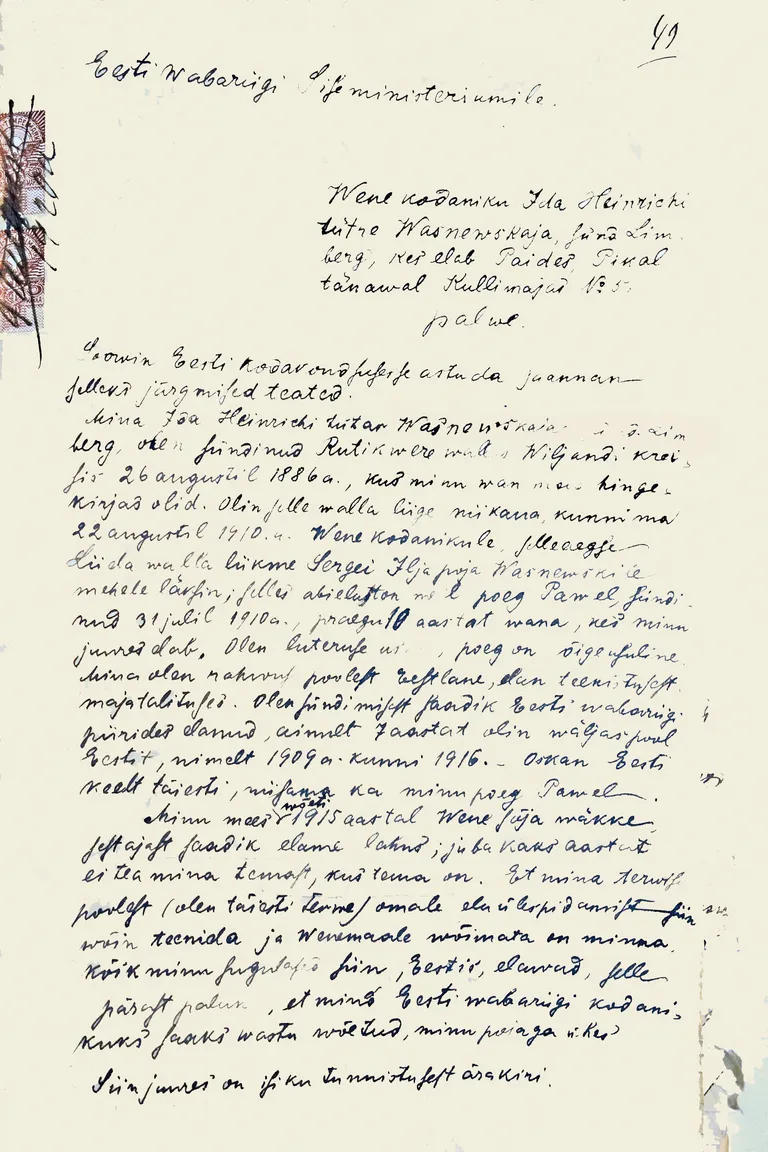 49
Eesti Wabariigi Siseministeriumile.
Wene kodaniku Ida Heinrichi
tütre Wasnewskaja, sünd. Lim
berg, kes elab Paides, Pikal
tänawal Kullimajas № 5.
palwe.
Soowin Eesti kodakondsusesse astuda ja annan
selleks järgmised teated.
Mina Ida Heinrichi tütar Wasnewskaja s. Lim
berg, olen sündinud Rutikwere wallas Wiljandi krei-
sis 26 augustil 1886 a., kus minu wanemad hinge-
kirjas olid. Olin selle walla liige niikaua, kunni ma
22 augustil 1910. a. Wene kodanikule, selleaegse
walla liikme Sergei Ilja poja Wasnewskile
mehele läksin; selles abielus on meil poeg Pawel, sündi-
nud 31 julil 1910 a., praegu 10 aastat wana, kes minu
juures elab. Olen luteruse usku, poeg on õigeusuline.
Mina olen rahwuse poolest Eestlane, elan teenistusest
majatalituses. Olen sündimisest saadik Eesti wabariigi
piirides elanud, ainult 7 aastat olin wäljaspool
Eestit, nimelt 1909 a. kunni 1916. - Oskan Eesti
keelt täiesti, niisama ka minu poeg Pawel.
Minu mees wõeti 1915 aastal Wene sõja wäkke,
sest ajast saadik elame lahus; juba kaks aastat
ei tea mina temast, kus tema on. Et mina terwise
poolest (olen täiesti terwe) omale elu ülespidamist siin
wõin teenida ja Wenemaale wõimata on minna,
kõik minu sugulased siin, Eestis, elawad, selle
pärast palun, et mind Eesti wabariigi kodani-
kuks saaks wastu wõetud, minu pojaga ükes
Siin juures on isiku tunnistusest ärakiri.